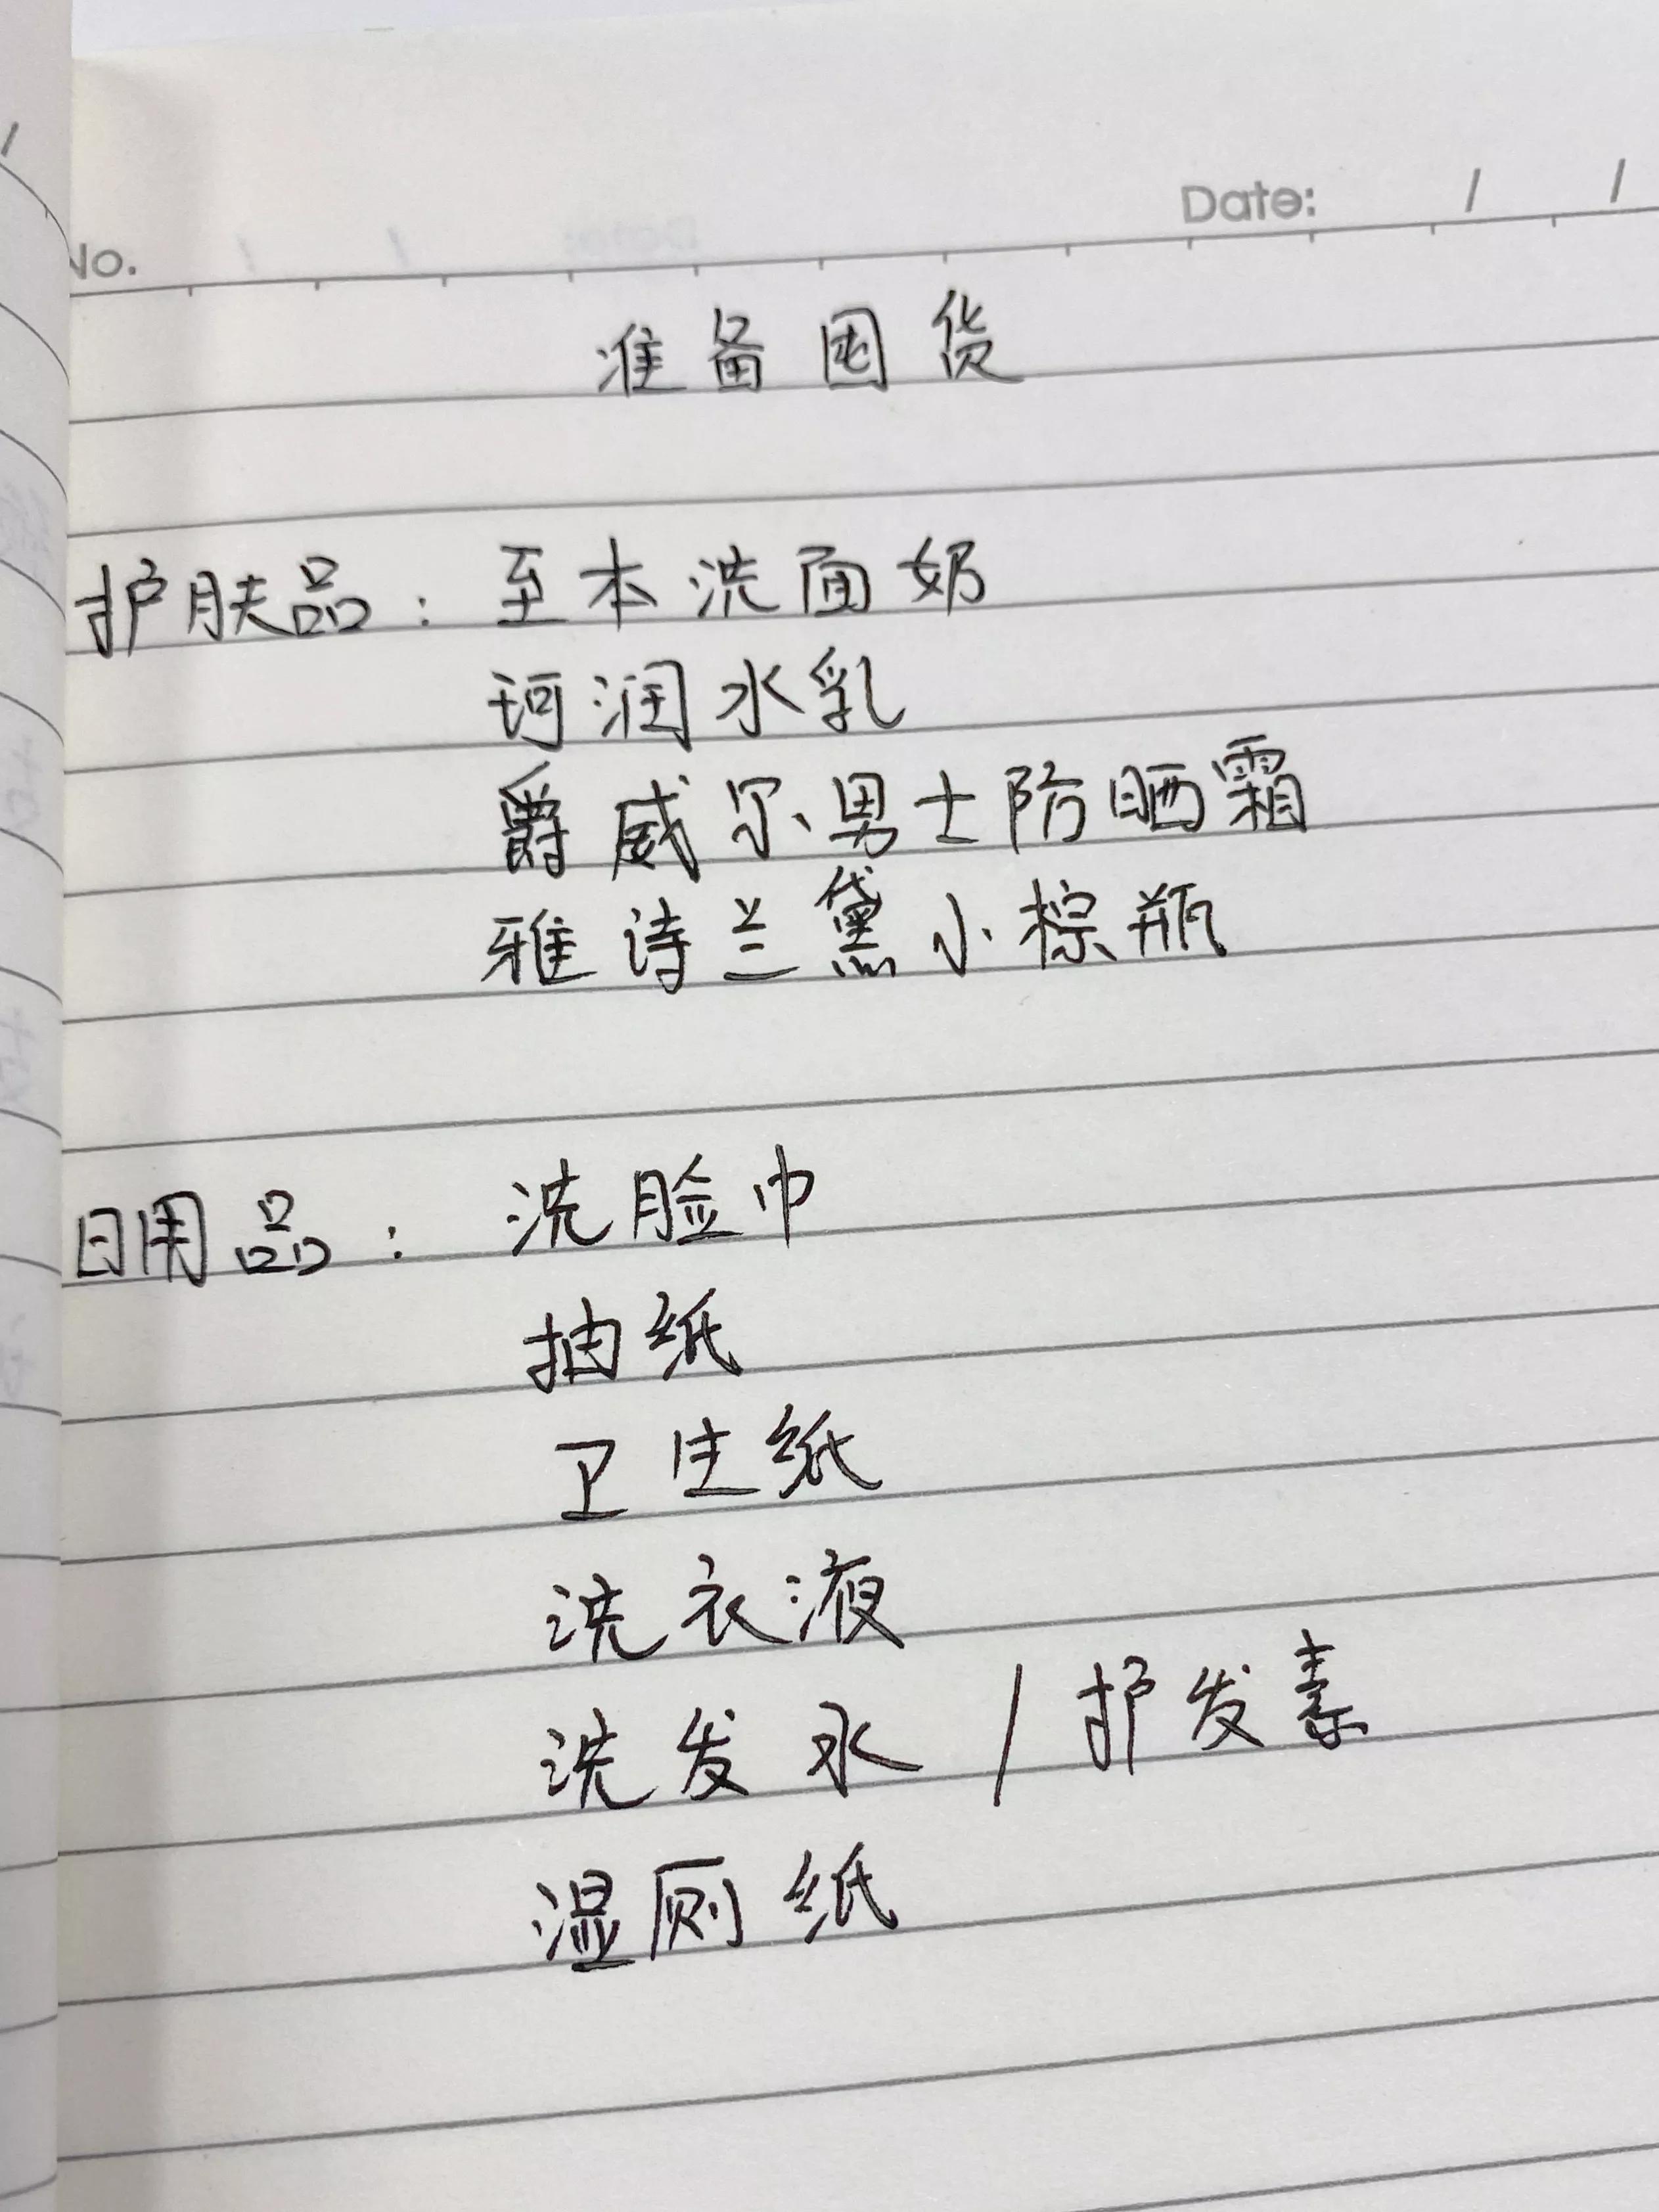 No.
Date: / /
准备囤货
护肤品：至本洗面奶
珂润水乳
爵威尔男士防晒霜
雅诗兰黛小棕瓶
日用品：洗脸巾
抽纸
卫生纸
洗衣液
洗发水 / 护发素
湿厕纸